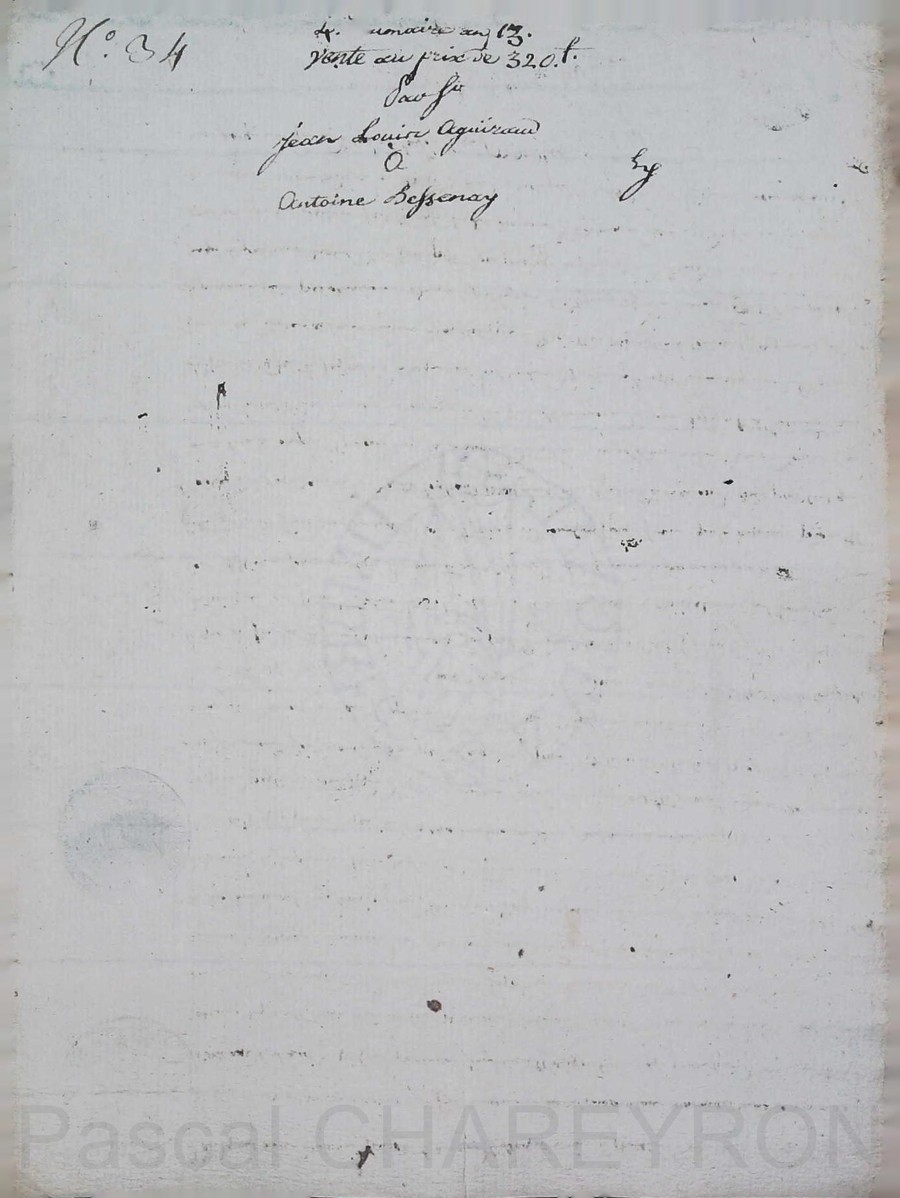 N.° 34
4. umaire an 13.
Vente au prix de 320.f.
Par Sr
Jean Louis Aguiraud
à
Antoine Bessenay
Pascal CHAREYRON